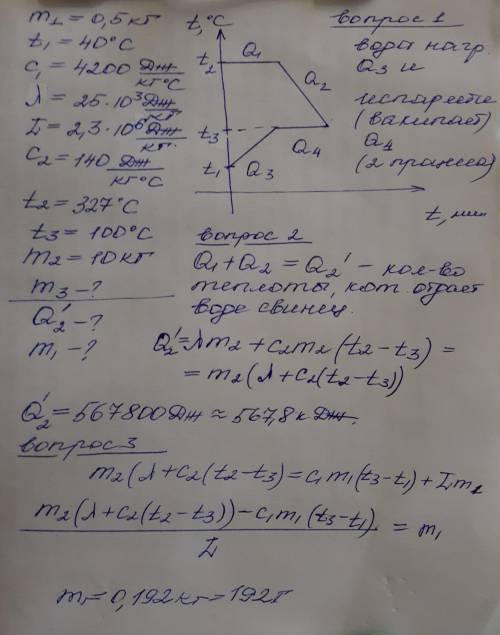 m₁ = 0,5 кг
t₁ = 40°C
c₁ = 4200 Дж/кг°C
λ = 25·10³ Дж/кг
L = 2,3·10⁶ Дж/кг.
c₂ = 140 Дж/кг°C
t₂ = 327°C
t₃ = 100°C
m₂ = 10 кг
m₃ - ?
Q₂' - ?
m₁ - ?
t,°C
t₂
t₃
t₁
Q₁
Q₂
Q₄
Q₃
t, мин
вопрос 1
вода нагр.
Q₃ и
(вакипает)
Q₄
(2 процесса)
вопрос 2
Q₁ + Q₂ = Q₂' – кол-во
теплоты, кот. отдает
воде свинец.
Q₂' = λm₂ + c₂m₂(t₂ - t₃) =
= m₂(λ + c₂(t₂ - t₃))
Q₂' = 567800 Дж ≈ 567,8 кДж.
вопрос 3
m₂(λ + c₂(t₂ - t₃) = c₁m₁(t₃ - t₁) + Lm₁
m₂(λ + c₂(t₂ - t₃)) - c₁m₁(t₃ - t₁) / L = m₁
m = 0,192 кг = 192 г